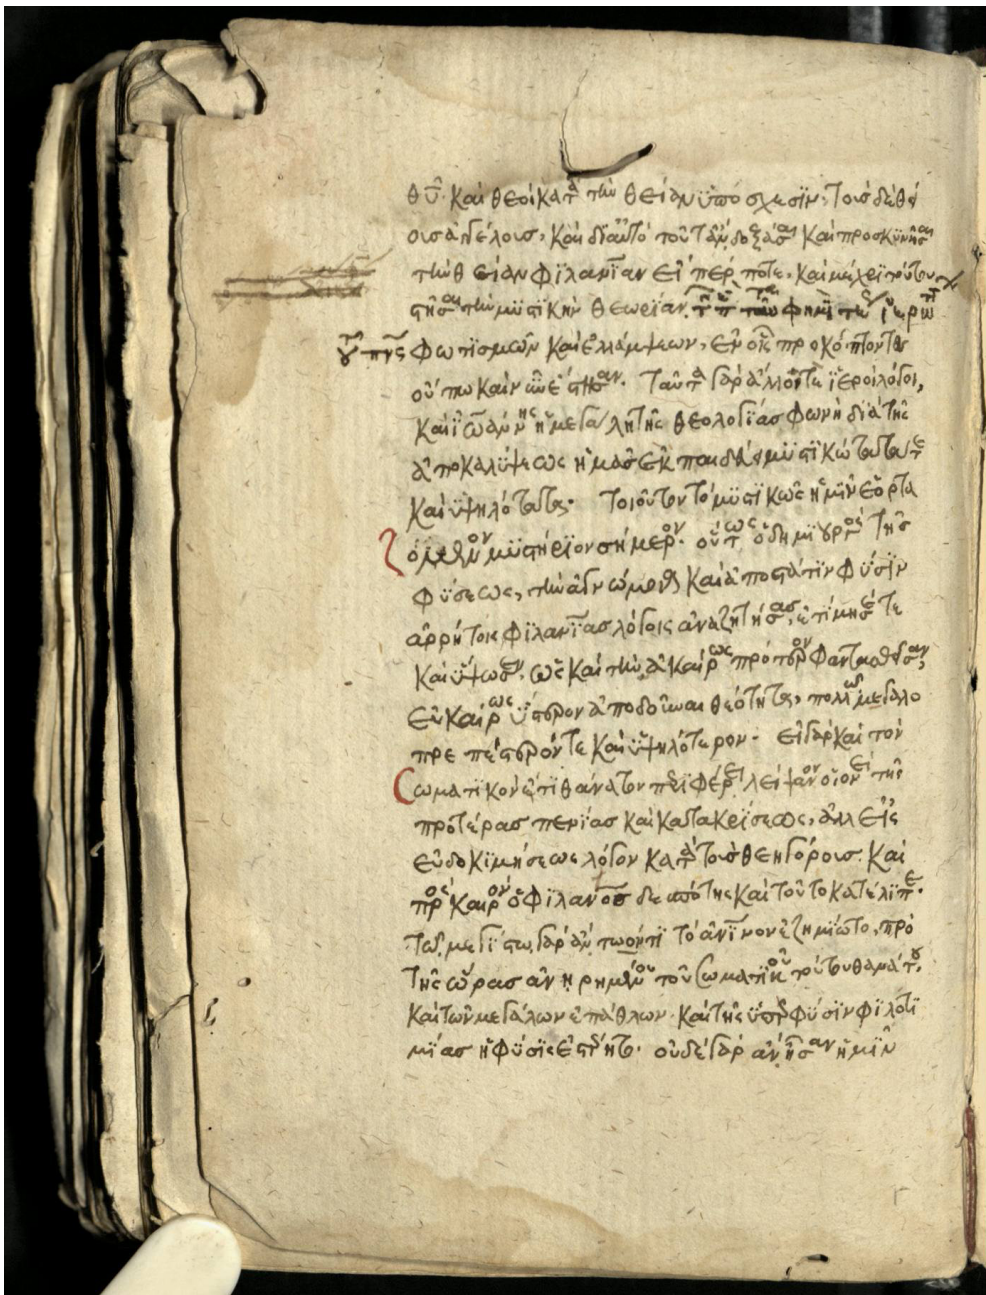 θῦ· Καὶ θεοὶ κατὰ τὴν θείαν ὑπόσχεσιν· τοῖς δὲ θεί
οις ἀγγέλοις, Καὶ διαυτὸ τοῦτ' ἂν δοξάσαι Καὶ προσκυνῆσαι
τὴν θείαν φιλανίαν εἴπερ ποτε, Καὶ μέχρι τούτου
στῆσαι τὴν μυστικὴν θεωρίαν, φημὶ τῶν ἱερω
φωτισμῶν Καὶ ἐλλάμψεων, ἐν οἷς προκόπτοντες
οὔπω Καὶ νῦν ἔστησαν. Ταῦτα γὰρ ἅλλοντε ἱεροὶ λόγοι,
Καὶ ἰωάννης ἡ μεγάλη τῆς θεολογίας φωνὴ διὰ τῆς
ἀποκαλύψεως ἡμᾶς ἐκπαιδεύει μυστικώτατά τε
Καὶ ὑψηλότατα· Τοιοῦτον τὸ μυστικῶς ἡμῖν ἑορτα
ζόμενον μυστήριον σήμερον· οὕτως ὁ δημιουργὸς τῆς
φύσεως, τὴν ἀγνώμονα Καὶ ἀποστάτιν φύσιν
ἀρρήτοις φιλανίας λόγοις ἀναζητήσας, ἐτίμησέ τε
Καὶ ὕψωσεν, ὡς Καὶ τὴν ἀκαίρως πρότερον φαντασθεῖσαν,
εὐκαίρως ὕστερον ἀποδοῦναι θεότητα, πολλῷ μεγαλο
πρεπέστερόν τε Καὶ ὑψηλότερον· εἰ γὰρ Καὶ τὸν
Σωματικὸν ἔτι θάνατον περιφέρει λείψανον οἱονεὶ τῆς
προτέρας πενίας Καὶ κατακρίσεως, ἀλλ' εἰς
εὐδοκιμήσεως λόγον κατὰ τοὺς θεηγόρους. Καὶ
πρὸς Καιρὸν ὁ φιλάνος δεσπότης Καὶ τοῦτο κατέλιπε·
τῷ μεγίστῳ γὰρ ἂν τωόντι τὸ ἀνινον ἐζημιῶτο, πρὸ
τῆς ὥρας ἀνῃρημένου τοῦ σωματικοῦ τούτου θανάτου,
Καὶ τῶν μεγάλων ἐπάθλων Καὶ τῆς ὑπὲρ φύσιν φιλοτι
μίας ἡ φύσις ἐστέρητο· οὐδὲ γὰρ ἂν ἦσαν ἡμῖν